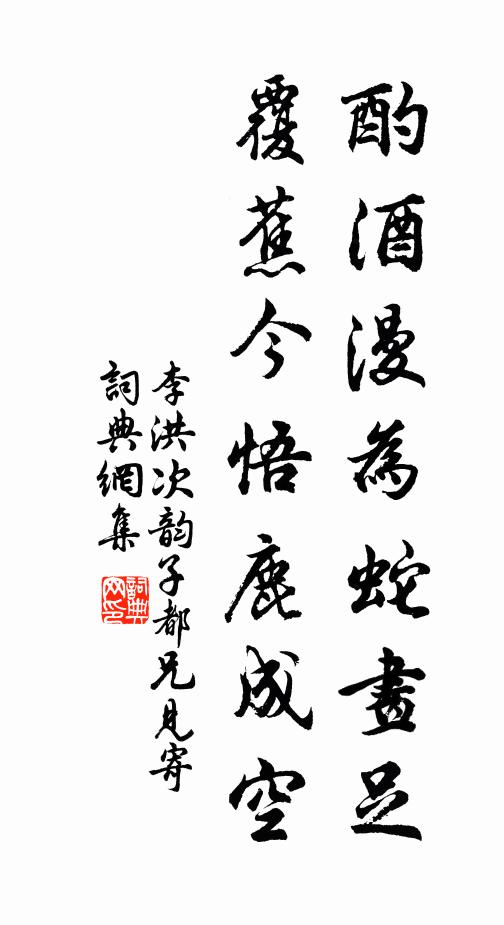 酌酒漫為蛇畫足
覆蕉今悟鹿成空
李洪次韵子都兄見寄
詞典網集
詞典網印